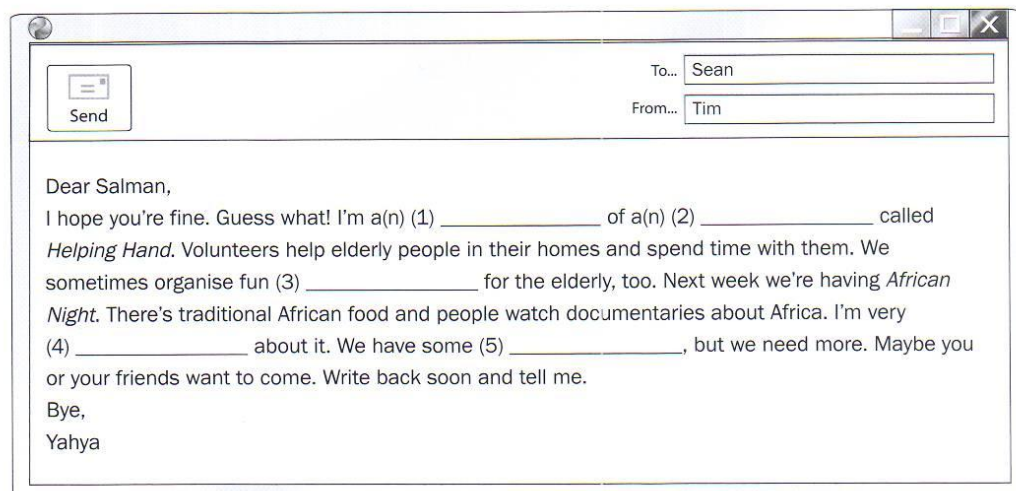 To... Sean
Send
From... Tim
Dear Salman,
I hope you're fine. Guess what! I'm a(n) (1) _______________ of a(n) (2) _______________ called
Helping Hand. Volunteers help elderly people in their homes and spend time with them. We
sometimes organise fun (3) _______________ for the elderly, too. Next week we're having African
Night. There's traditional African food and people watch documentaries about Africa. I'm very
(4) _______________ about it. We have some (5) _______________, but we need more. Maybe you
or your friends want to come. Write back soon and tell me.
Bye,
Yahya